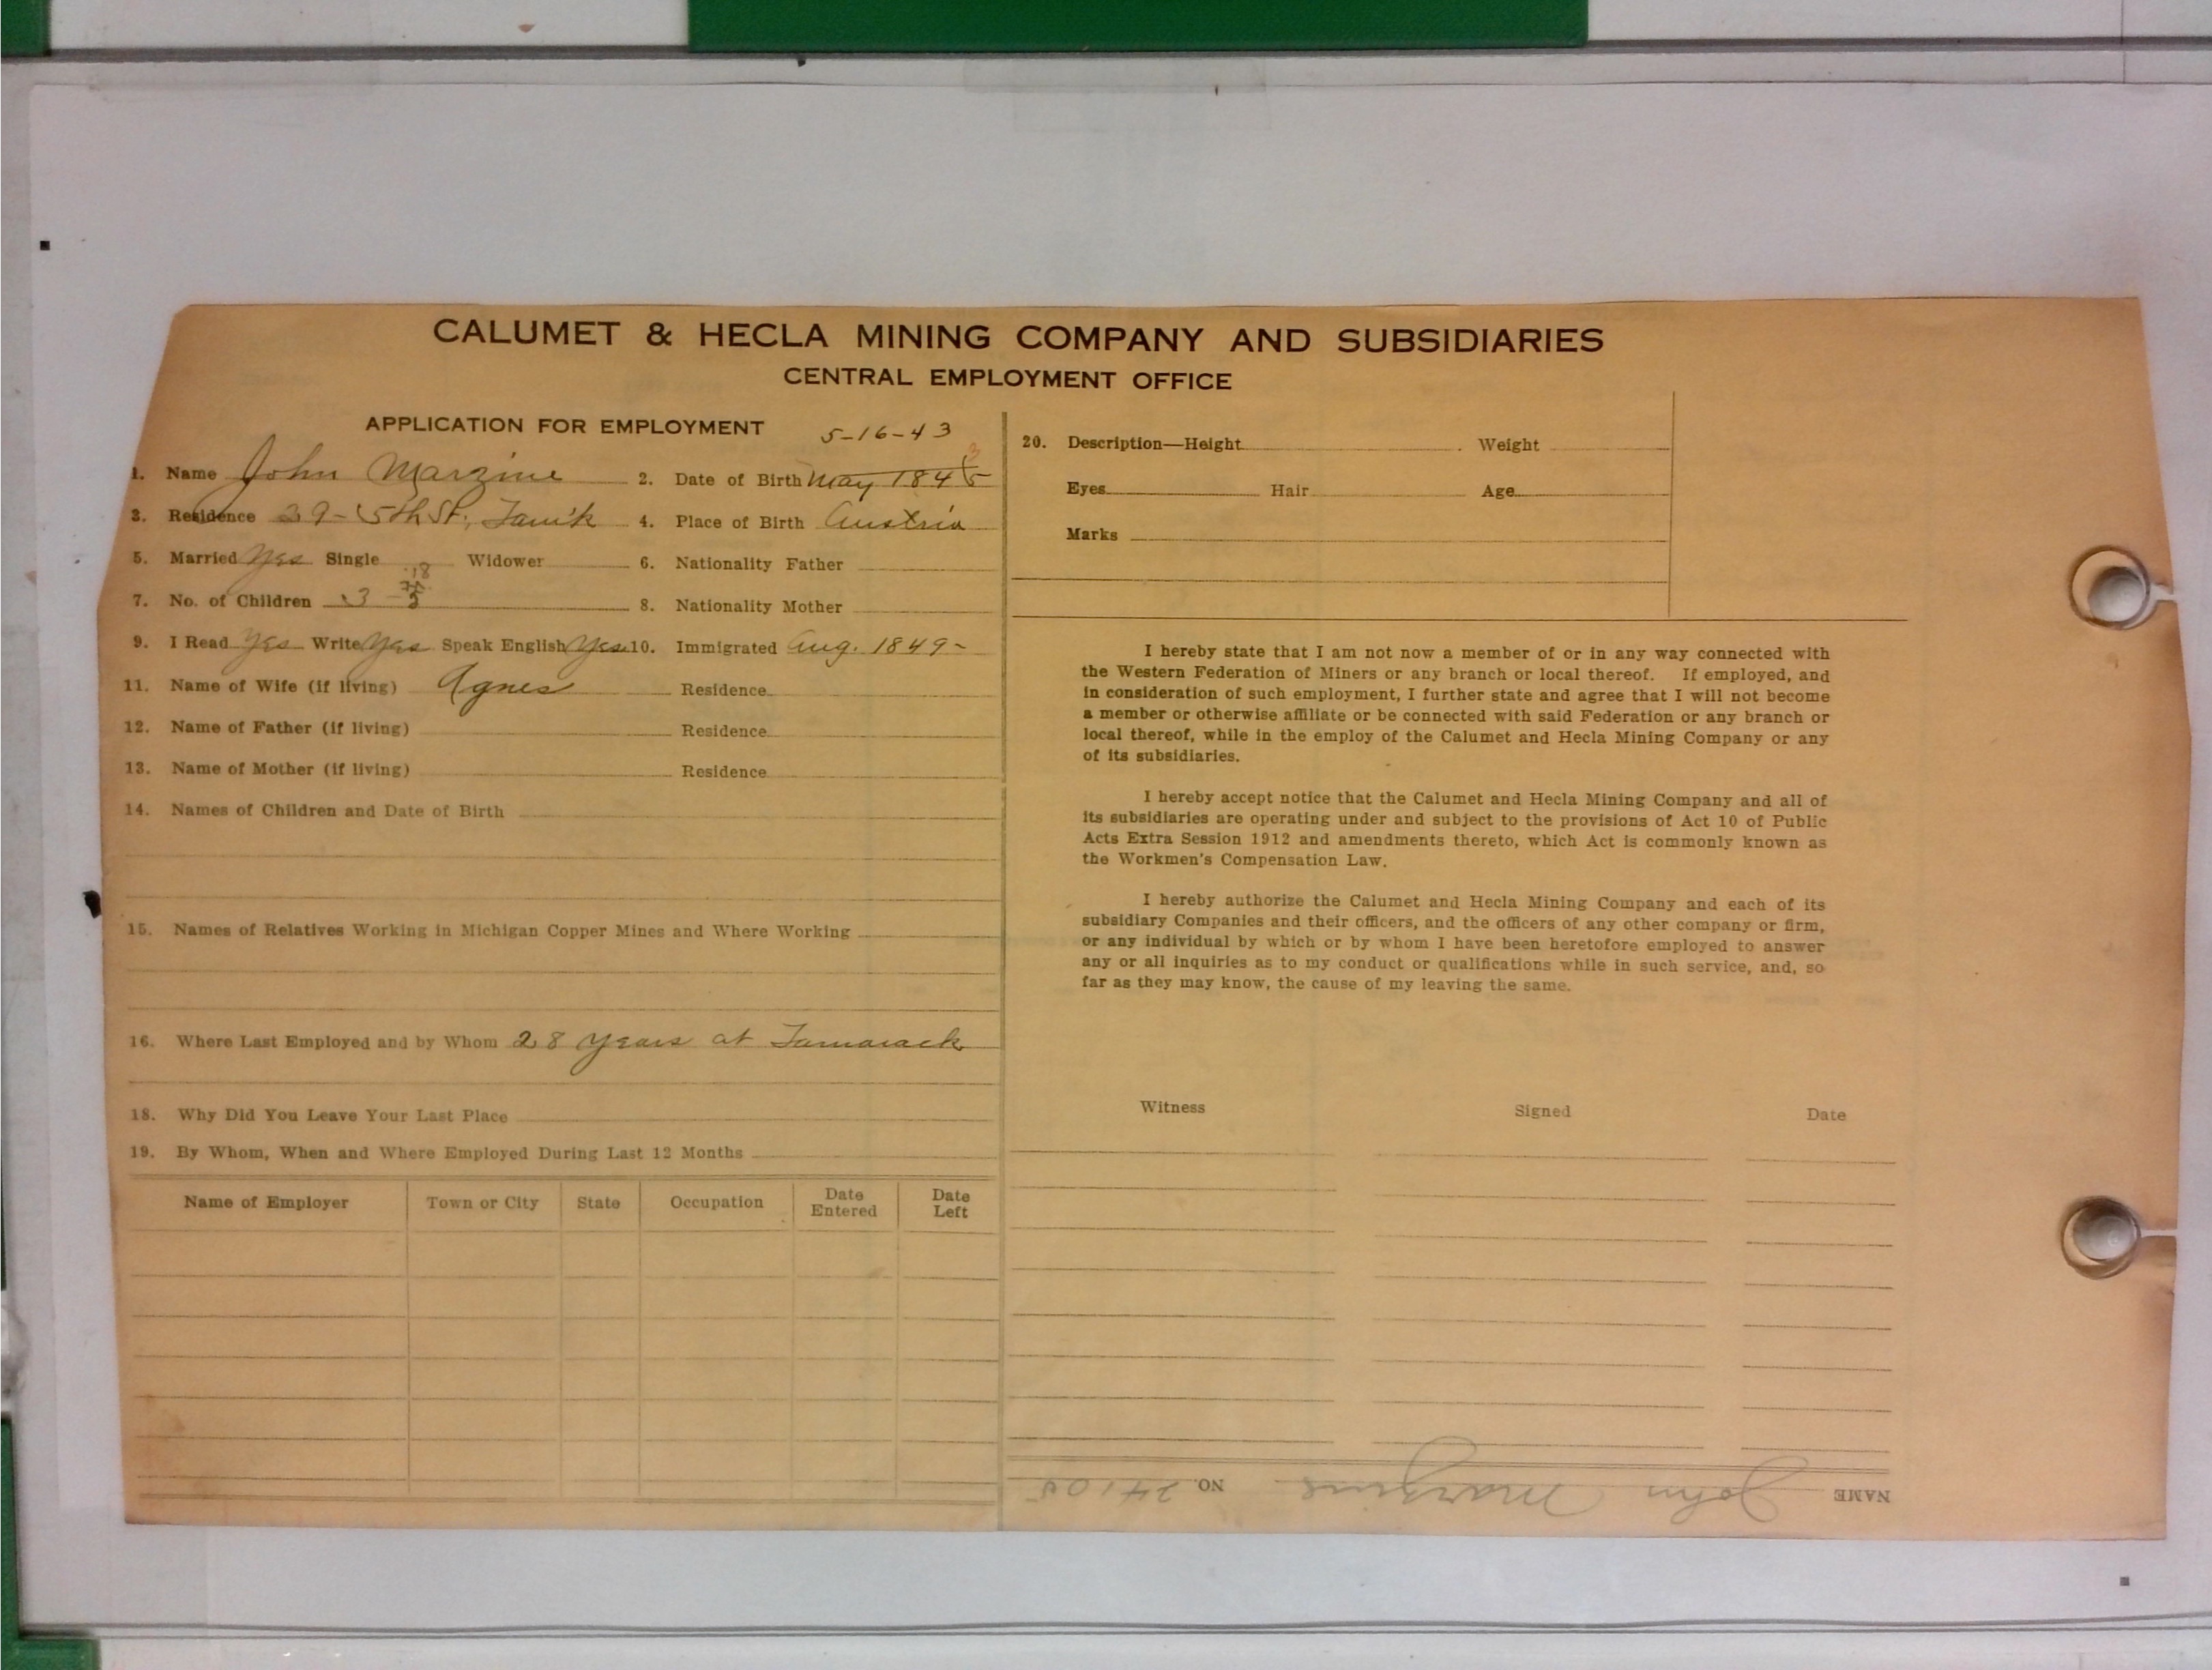 CALUMET & HECLA MINING COMPANY AND SUBSIDIARIES
CENTRAL EMPLOYMENT OFFICE
APPLICATION FOR EMPLOYMENT 5-16-43
1. Name John Marzine 2. Date of Birth May 1845 3
3. Residence 39-5th St, Tam'k 4. Place of Birth Austria
5. Married Yes Single Widower 6. Nationality Father
18
7. No. of Children 3 8. Nationality Mother
9. I Read Yes Write Yes Speak English Yes 10. Immigrated Aug. 1849-
11. Name of Wife (if living) Agnes Residence
12. Name of Father (if living) Residence
13. Name of Mother (if living) Residence
14. Names of Children and Date of Birth
15. Names of Relatives Working in Michigan Copper Mines and Where Working
16. Where Last Employed and by Whom 28 years at Tamarack
18. Why Did You Leave Your Last Place
19. By Whom, When and Where Employed During Last 12 Months
Name of Employer Town or City State Occupation Date Entered Date Left
20. Description—Height Weight
Eyes Hair Age
Marks
I hereby state that I am not now a member of or in any way connected with
the Western Federation of Miners or any branch or local thereof. If employed, and
in consideration of such employment, I further state and agree that I will not become
a member or otherwise affiliate or be connected with said Federation or any branch or
local thereof, while in the employ of the Calumet and Hecla Mining Company or any
of its subsidiaries.
I hereby accept notice that the Calumet and Hecla Mining Company and all of
its subsidiaries are operating under and subject to the provisions of Act 10 of Public
Acts Extra Session 1912 and amendments thereto, which Act is commonly known as
the Workmen's Compensation Law.
I hereby authorize the Calumet and Hecla Mining Company and each of its
subsidiary Companies and their officers, and the officers of any other company or firm,
or any individual by which or by whom I have been heretofore employed to answer
any or all inquiries as to my conduct or qualifications while in such service, and, so
far as they may know, the cause of my leaving the same.
Witness Signed Date
NAME John Marzine NO. 24105